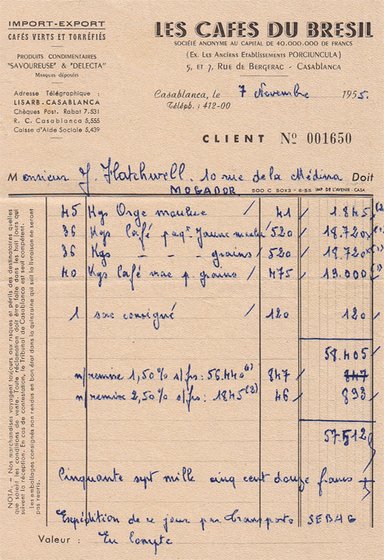 IMPORT-EXPORT
CAFÉS VERTS ET TORRÉFIÉS
PRODUITS CONDIMENTAIRES
"SAVOUREUSE" & "DELECTA"
Marques déposées
Adresse Télégraphique :
LISARB-CASABLANCA
Chèques Post. Rabat 7.531
R. C. Casablanca 5,555
Caisse d'Aide Sociale 5,439
LES CAFES DU BRESIL
SOCIÉTÉ ANONYME AU CAPITAL DE 40.000.000 DE FRANCS
(Ex. Les Anciens Etablissements PORCIUNCULA)
5, et 7, Rue de Bergerac - Casablanca
Casablanca, le 7 Novembre 1955.
Téléph. : 412-00
CLIENT Nº 001650
Monsieur J. Hatchwell. 10 rue de la Médina Doit
MOGADOR
45 Kgs Orge moulue 41 1.845 (2)
36 Kgs Café paq. Jaune moulu 520 18.720 (1)
36 Kgs - - - grains 520 18.720 (1)
40 Kgs Café vrac p. grains 475 19.000 (1)
1 sac consigné 120 120
58.405
n/remise 1,50% s/frs: 56.440 (1) 847 847
n/remise 2,50% s/frs: 1845 (2) 46 893
57.512
Cinquante sept mille cinq cent douze francs
Expédition de ce jour par transports SEBAG
Valeur : En Compte
NOTA. - Nos marchandises voyagent toujours aux risques et périls des destinataires quelles
que soient les conditions de vente. Toute réclamation doit être faite dans les huit jours qui
suivent la réception. En cas de contestation, le Tribunal de Casablanca est seul compétent.
Les emballages consignés non rendus en bon état dans la quinzaine qui suit la livraison ne seront
pas repris.